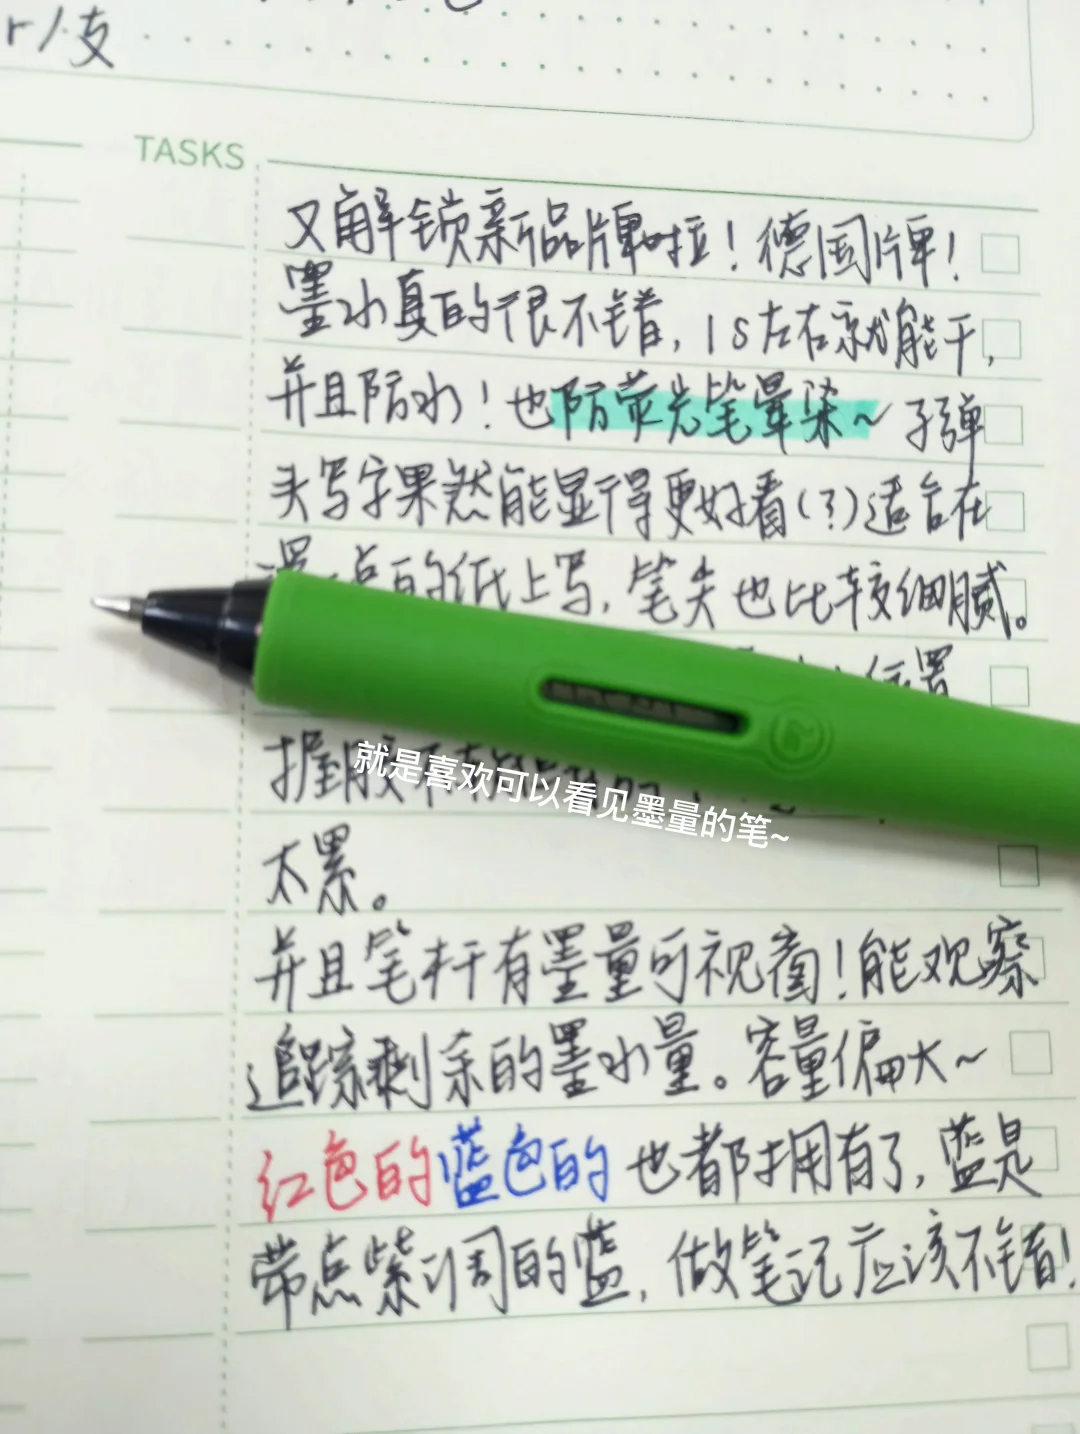 r/支
TASKS
又解锁新品牌啦！德国牌！
墨水真的很不错，1s左右就能干，
并且防水！也防荧光笔晕染~ 子弹
头写字果然能显得更好看(？)适合在
点的纸上写，笔尖也比较细腻。
位置
握胶
就是喜欢可以看见墨量的笔~
太累。
并且笔杆有墨量可视窗！能观察
追踪剩余的墨水量。容量偏大~
红色的蓝色的也都拥有了，蓝是
带点紫调的蓝，做笔记应该不错！